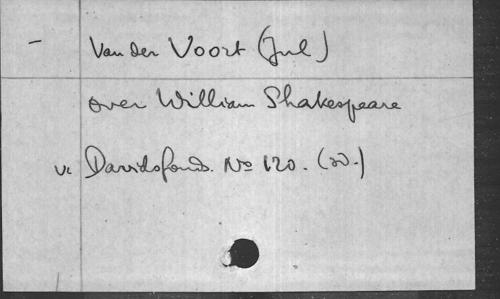 - Van der Voort (Jul)
over William Shakespeare
Davidsfonds. No 120. (20.)